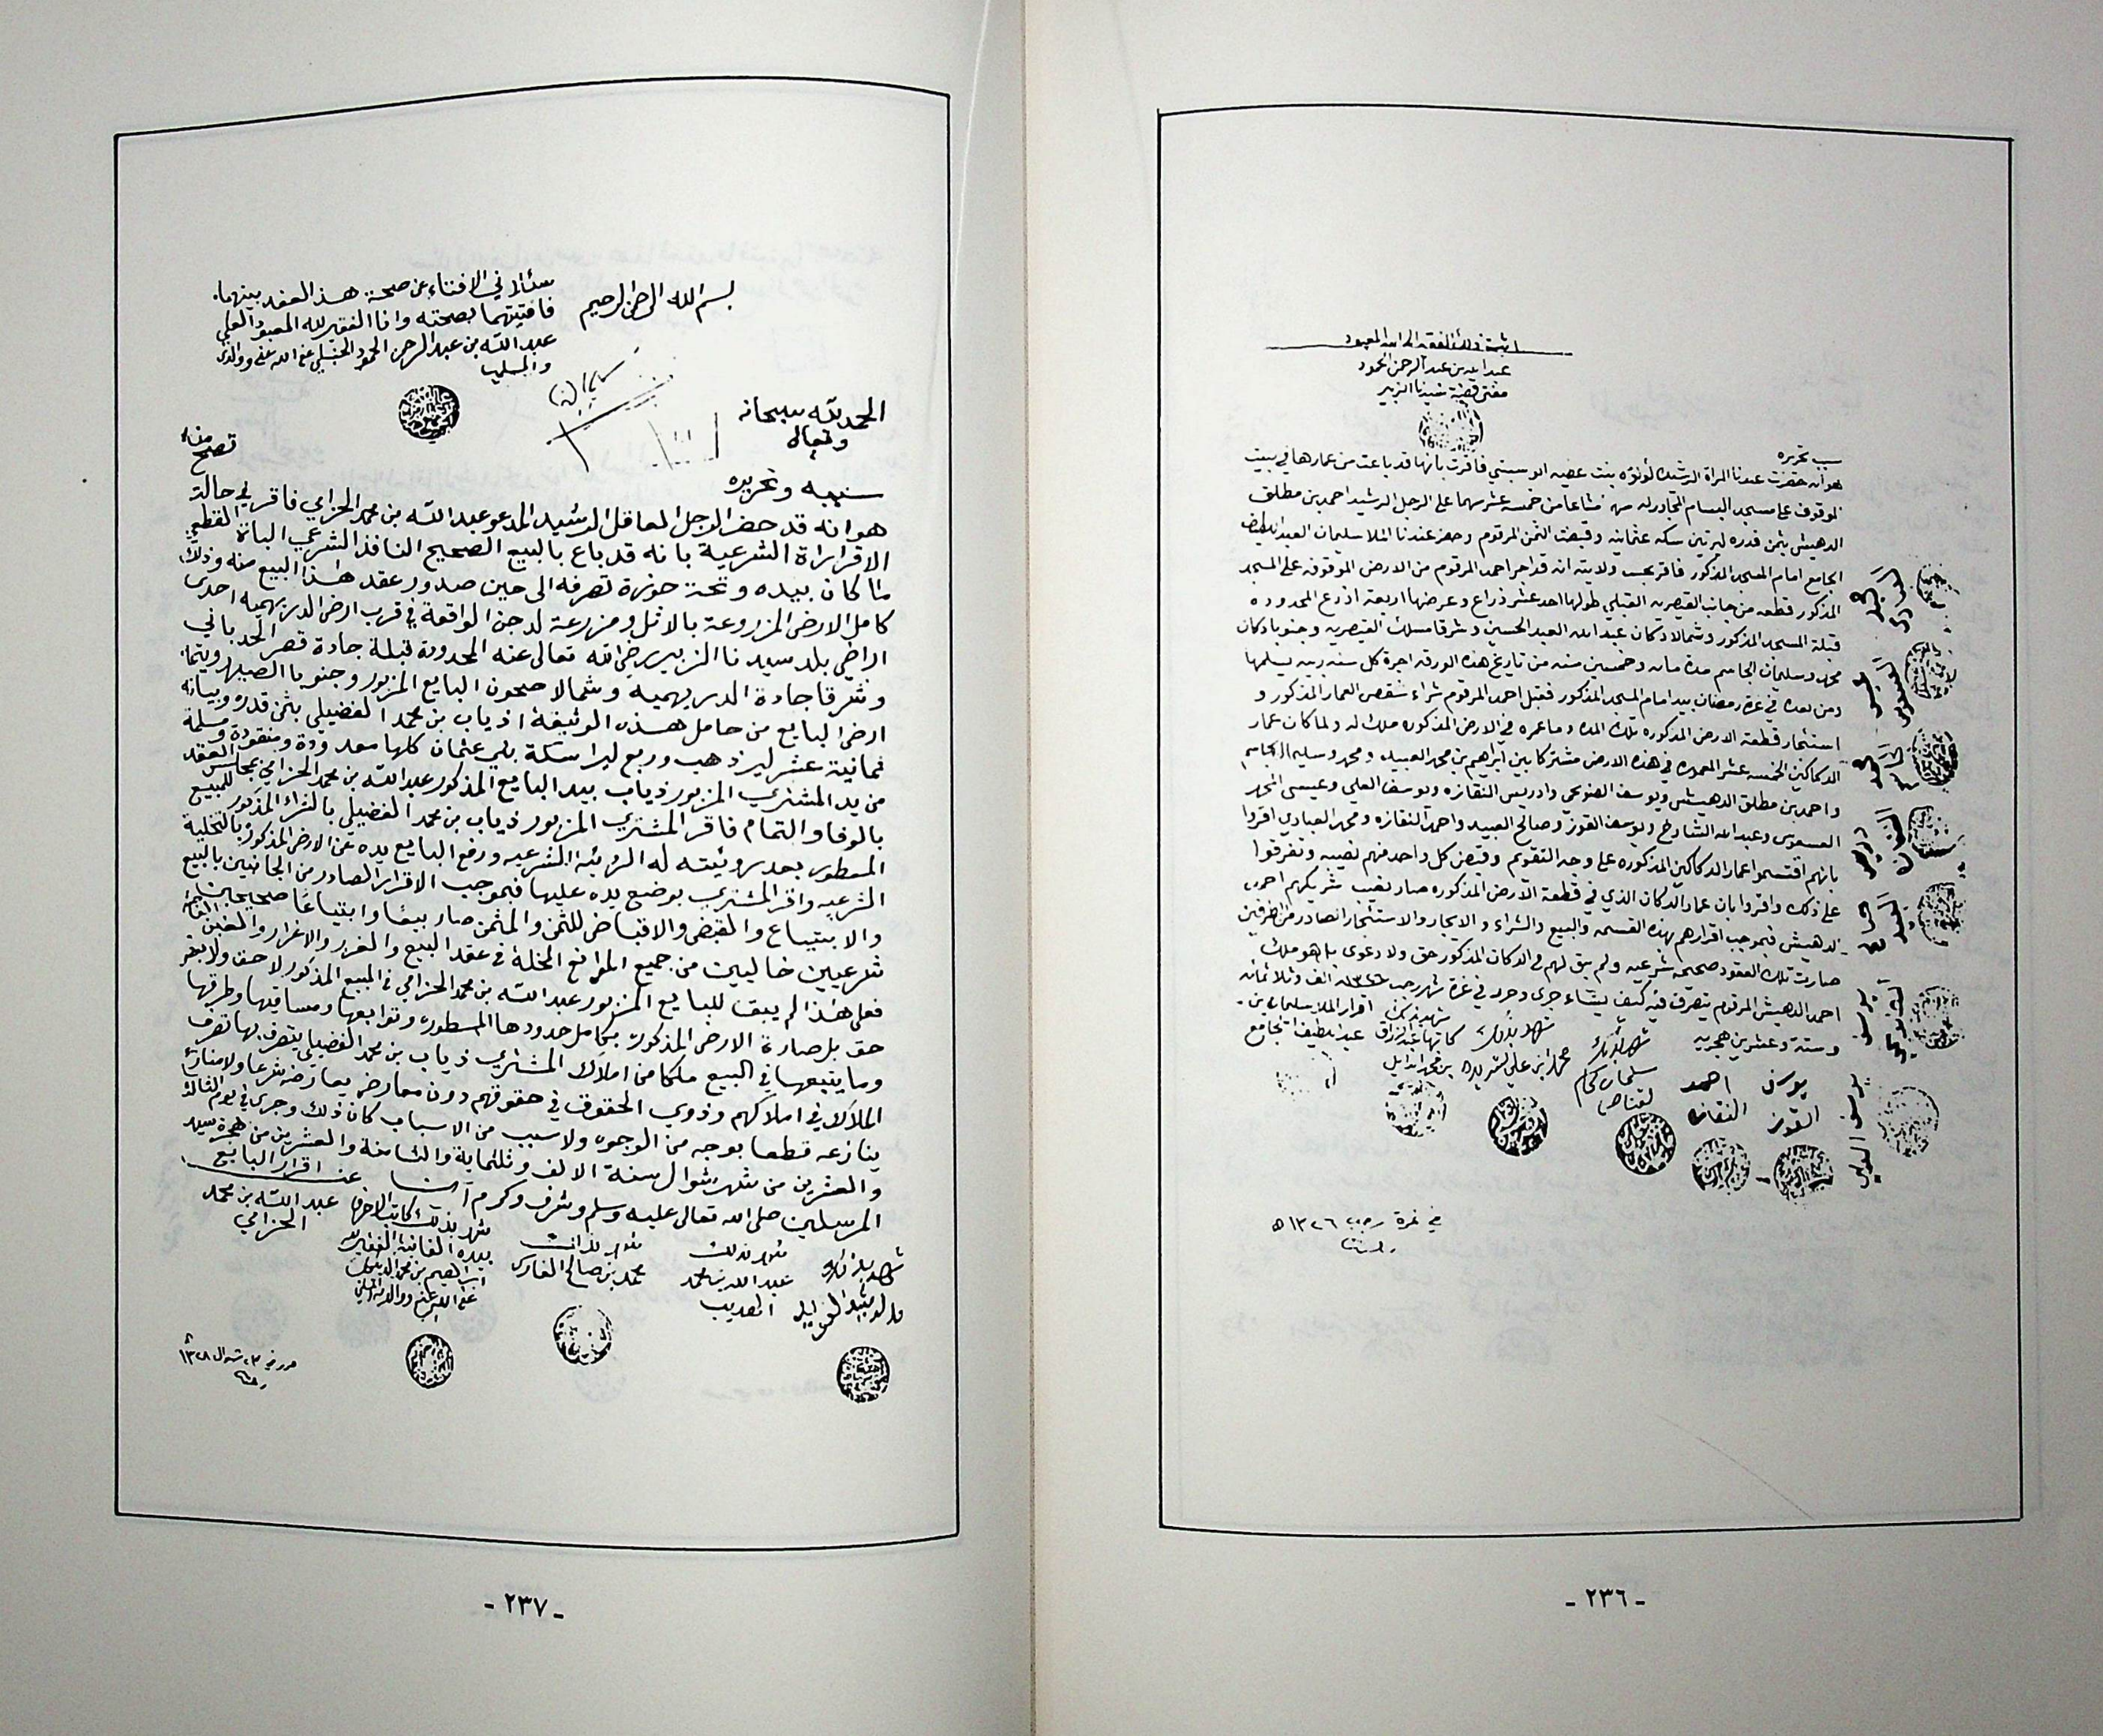 اثبت ذلك الفقير الى الله المعبود
عبد الله بن عبد الرحمن الحمود
مفتي قصبة سيدنا الزبير
سبب تحريره
هو انه حضرت عندنا المراة الرشيده لؤلؤه بنت عضيه ابو سبتي فاقرت بانها قد باعت من عمارها في بيت
الموقوف على مسجد البسام المجاور له من مشاعا من خمسة عشر سهما على الرجل الرشيد احمد بن مطلق
الدهيش بثمن قدره ليرتين سكه عثمانيه وقبضت الثمن المرقوم وحضر عندنا الملا سليمان العبد اللطيف
الجامع امام المسجد المذكور فاقر بحسب ولايته انه قد اجر احمد المرقوم من الارض الموقوفه على المسجد
المذكور قطعه من جانب القيصريه القبلي طولها احد عشر ذراع وعرضها اربعة اذرع المحدوده
قبلة المسجد المذكور وشمالا دكان عبد الله العبد المحسن وشرقا مسلك القيصريه وجنوبا دكان
محمد وسليمان الجاسم مدة مايه وخمسين سنه من تاريخ هذه الورقه اجرة كل سنه ربيه يسلمها
ومن بعده في غرة رمضان بيد امام المسجد المذكور فقبل احمد المرقوم شراء شقص العمار المذكور و
استئجار قطعة الارض المذكوره تلك المده وما عمره في الارض المذكوره ملك له ولما كان عمار
الدكاكين الخمسه عشر المعمره في هذه الارض مشتركا بين ابراهيم بن محمد العبيد ومحمد وسليمان الجاسم
واحمد بن مطلق الدهيش ويوسف الضويحي وادريس النقازه ويوسف العلي وعيسى المحمد
العسعوسي وعبد الله الشارخ ويوسف القوز وصالح العبيد واحمد النقازه ومحمد العبادي اقروا
بانهم اقتسموا عمار الدكاكين المذكوره على وجه التقويم وقبض كل واحد منهم نصيبه وتفرقوا
على ذلك واقروا بان عمار الدكان الذي في قطعة الارض المذكوره صار نصيب شريكهم احمد
الدهيش فبموجب اقرارهم بهذه القسمه والبيع والشراء والايجار والاستئجار الصادر من الطرفين
صارت تلك العقود صحيحه شرعيه ولم يبق لهم في الدكان المذكور حق ولا دعوى بل هو ملك
احمد الدهيش المرقوم يتصرف فيه كيف يشاء جرى وحرر في غرة شهر رجب ١٣٢٦ الف وثلاثمائه
وستة وعشرين هجريه
شهد بذلك
سليمان
شهد بذلك
محمد ابن علي
شهد بذلك
كاتبها عبد الرزاق
اقرار الملا سليمان بن
عبد اللطيف الجامع
يوسف
القوز
احمد
النقازه
محمد
العبادي
عيسى
العسعوسي
صالح
العبيد
يوسف
الضويحي
يوسف العلي
في غرة رجب ١٣٢٦ ه
- ٢٣٦ -
سئلا في الافتاء عن صحة هذا العقد بينهما
فافتيتهما بصحته وانا الفقير لله المعبود العلي
عبد الله بن عبد الرحمن الحمود الحنبلي عفى الله عنه ووالديه
والمسلمين
بسم الله الرحمن الرحيم
الحمد لله سبحانه
وتعالى
تصح منه
سببه وتحريره
هو انه قد حضر الرجل العاقل الرشيد المدعو عبد الله بن محمد الحزامي فاقر في حالة
الاقرارة الشرعية بانه قد باع بالبيع الصحيح النافذ الشرعي البات القطعي
ما كان بيده وتحت حوزة تصرفه الى حين صدور عقد هذا البيع منه وذلك
كامل الارض المزروعة بالاثل ومزرعة لدجن الواقعة في قرب ارض الدريهميه احدى
اراضي بلد سيدنا الزبير رضي الله تعالى عنه المحدودة قبلة جادة قصر الحدباني
وشرقا جادة الدريهميه وشمالا صحون البايع المزبور وجنوبا الصيهد ويتمام
ارض البايع من حامل هذه الوثيقة اذياب بن محمد الفضيلي بثمن قدره وبيانه
ثمانية عشر ليرة ذهب وربع ليرا سكة بني عثمان كلها معدودة ومنقودة ومسلمة
من يد المشتري المزبور ذياب بيد البايع المذكور عبد الله بن محمد الحزامي بمجلس العقد
بالوفا والتمام فاقر المشتري المزبور ذياب بن محمد الفضيلي بالشراء المذكور للمبيع
المسطور بعد رويئته له الرويئة الشرعيه ورفع البايع يده عن الارض المذكور بالتخلية
الشرعيه واقر المشتري بوضع يده عليها فبموجب الاقرار الصادر من الجانبين بالبيع
والابتياع والقبض والاقباض للثمن والمثمن صار بيعا وابتياعا صحيحين
شرعيين خاليين من جميع الموانع المخلة في عقد البيع والغرر والاغرار والغبن
فعلى هذا لم يبقا للبايع المزبور عبد الله بن محمد الحزامي في المبيع المذكور لا حق ولا بعض
حق بل صارة الارض المذكوره بكامل حدودها المسطوره وتوابعها ومساقيها وطرقها
وما يتبعها في البيع ملكا من املاك المشتري ذياب بن محمد الفضيلي يتصرف بها تصرف
الملاك في املاكهم وذوي الحقوق في حقوقهم دون معارض يعارضه شرعا ولا منازع
ينازعه قطعا بوجه من الوجوه ولا سبب من الاسباب كان ذلك وجرى في يوم الثالث
والعشرين من شهر شوال سنة الالف وثلثماية والثامنة والعشرين من هجرة سيد
المرسلين صلى الله تعالى عليه وسلم وشرف وكرم آمين
عن اقرار البايع
عبد الله بن محمد
الحزامي
شهد بذلك كاتب الاحرف
بيده الفانية الفقير لله
ابراهيم بن محمد
عفى الله عنه ووالديه
شهد بذلك
محمد بن صالح الفارس
شهد بذلك
عبد الله بن محمد
العديب
شهد بذلك
حرر في ٢٣ شوال ١٣٢٨
- ٢٣٧ -